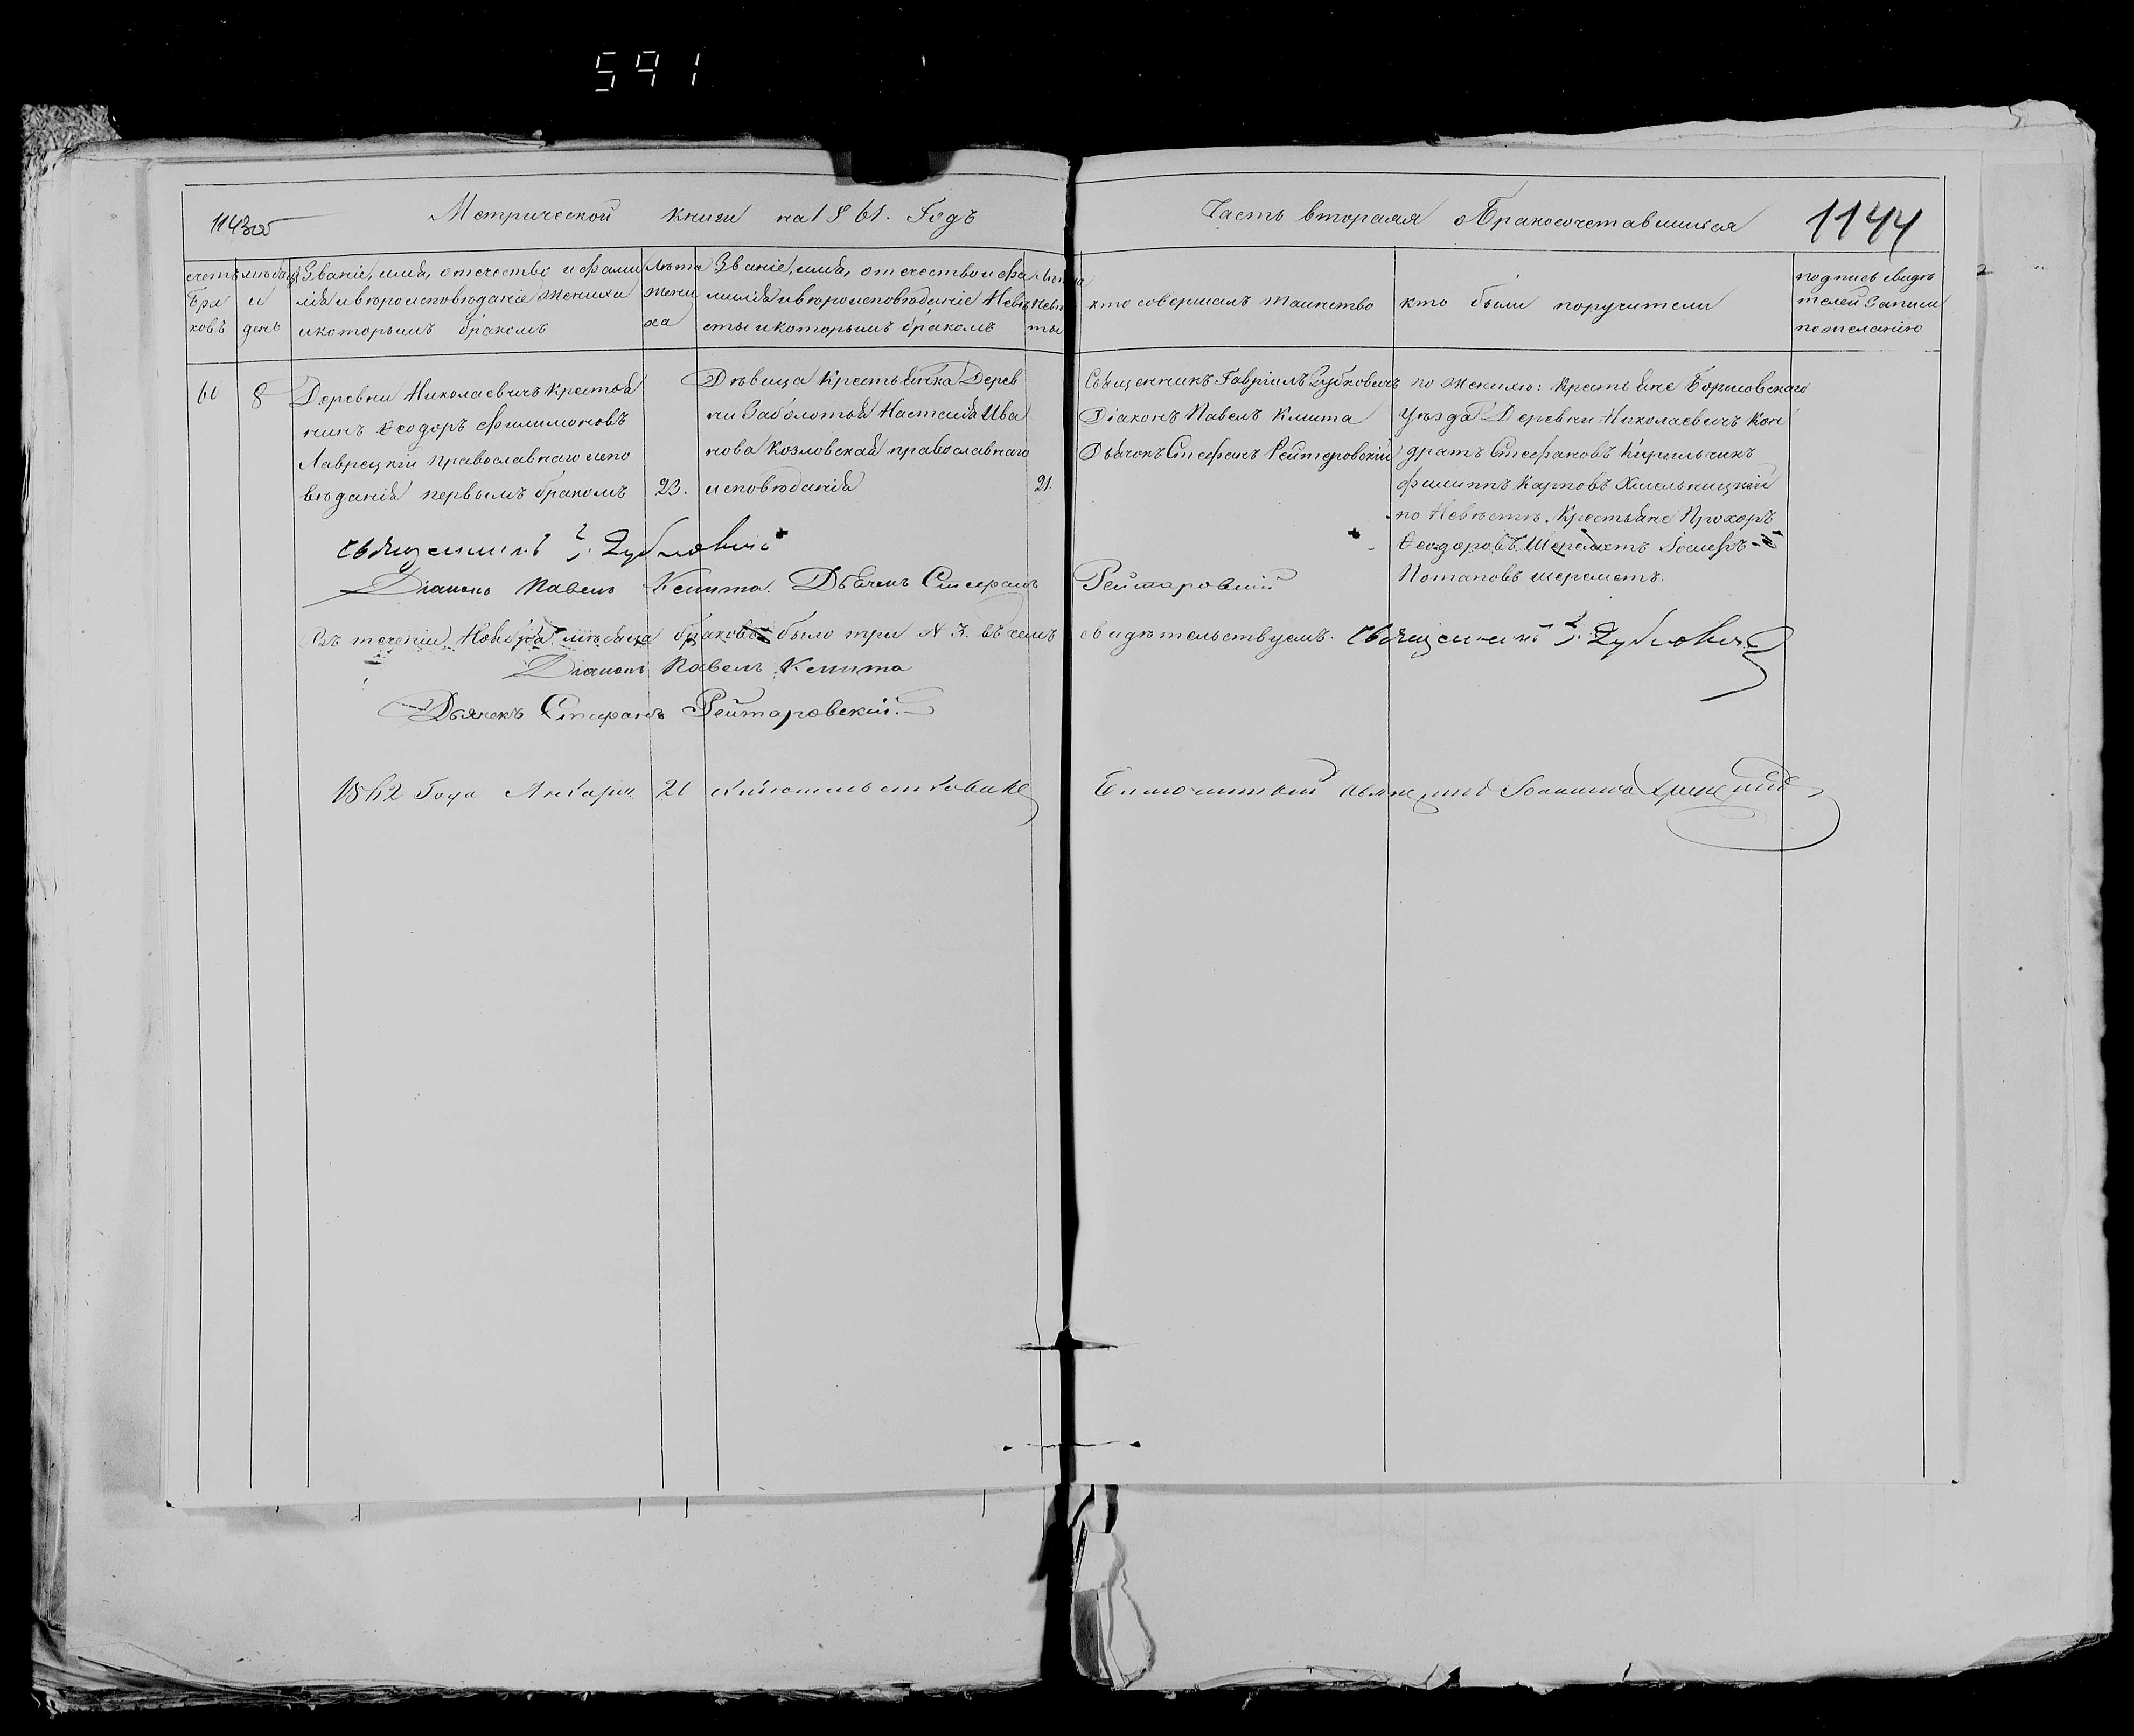 591
1143об
Метрической книги на 1861. Годъ
Часть вторая о Бракосочетавшихся
1144
счетъ бра ковъ
мѣсяцъ и день
Званіе, имя, отечество и фами
лія и вѣроисповѣданіе Жениха
и которымъ бракомъ
Лѣта
Жени
ха
Званіе, имя, отечество и фа
милія и вѣроисповѣданіе Невѣ
сты и которымъ бракомъ
Лѣта
Невѣ
сты
кто совершалъ таинство
кто были поручители
подпись свидѣ
телей записи
по желанію
8
Деревни Николаевичъ крестья
нинъ Ѳеодоръ Филимоновъ
Лаврецкій Православнаго испо
вѣданія первымъ бракомъ
23.
Дѣвица Крестьянка Дерев
ни Заболотья Настасія Ива
нова Козловская православнаго
исповѣданія
21.
Священникъ Гавріилъ Зубковичъ
Діаконъ Павелъ Клишта
Дьячокъ Стефанъ Рейтеровскій
по Женихѣ: Крестьяне Борисовскаго
Уѣзда Деревни Николаевичъ Кон
дратъ Стефановъ Кирильчикъ
Филиппъ Карповъ Хмельницкій
по Невѣстѣ Крестьяне Прохоръ
Ѳеодоровъ Шереметъ Іосифъ
Потаповъ Шереметъ.
Священникъ Г. Зубковичъ
Діаконъ Павелъ Клишта. Дьячекъ Стефанъ Рейтаровскій
Въ теченіи Ноября мѣсяца браковъ было три N 3. въ чемъ свидѣтельствуемъ. Священникъ Г. Зубковичъ
Діаконъ Павелъ Клишта
Дьячекъ Стефанъ Рейтаровскій.
1862 Года Января 21 Благочинный